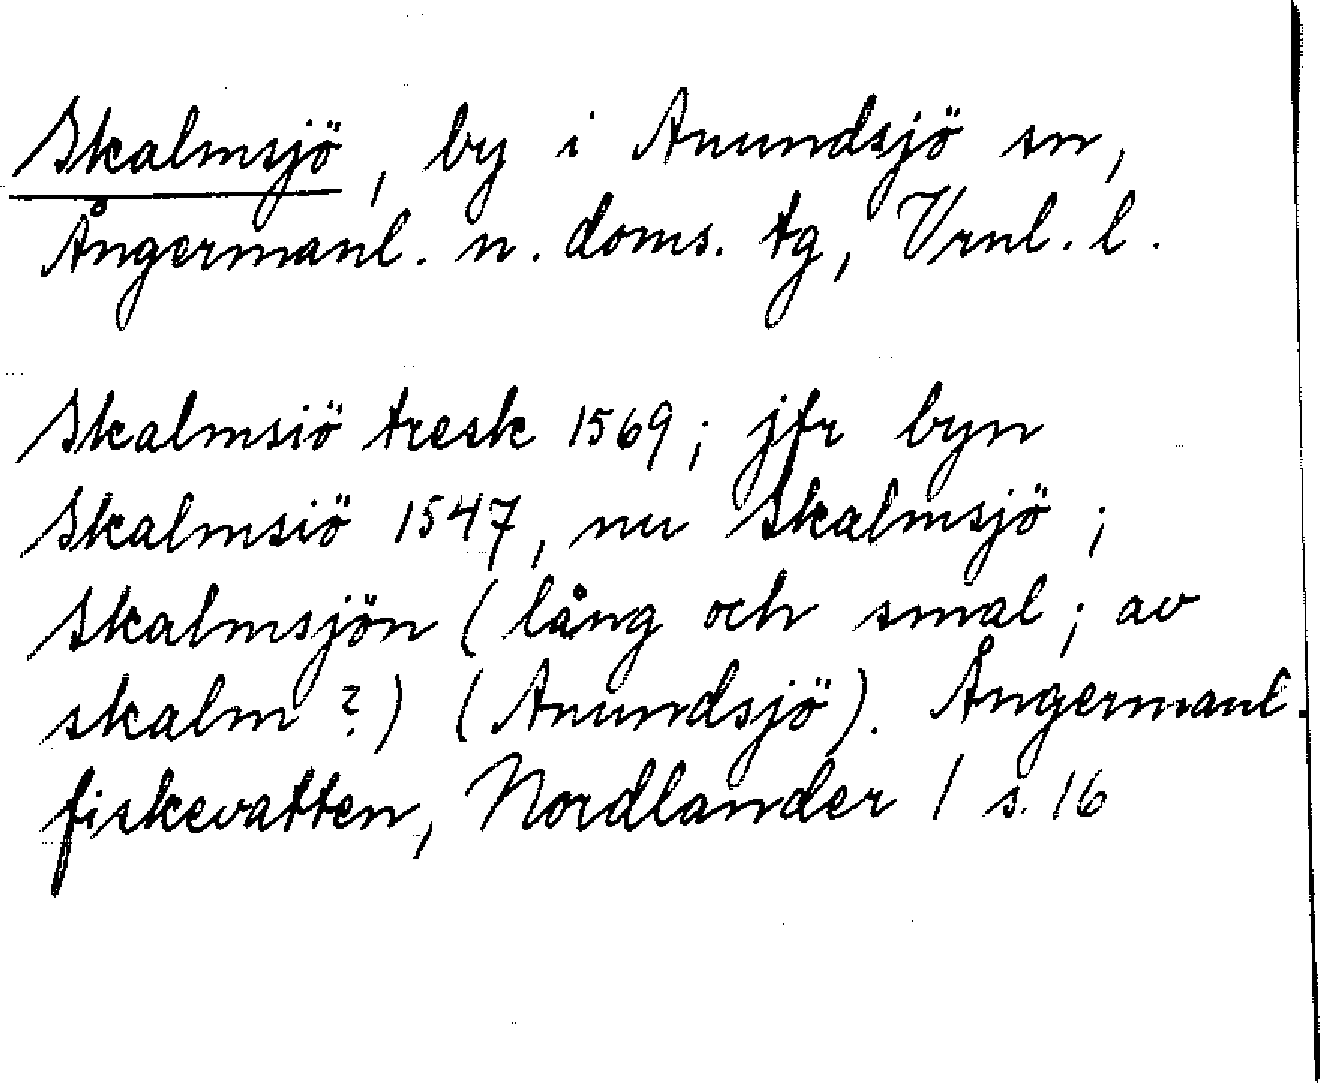 Skalmsjö, by i Anundsjö sn,
Ångermanl. n. doms. tg, Vrnl. l.
Skalmsiö tresk 1569; jfr byn
Skalmsiö 1547, nu Skalmsjö;
Skalmsjön (lång och smal; av
skalm?) (Anundsjö). Ångermanl.
fiskevatten, Nordlander 1 s. 16